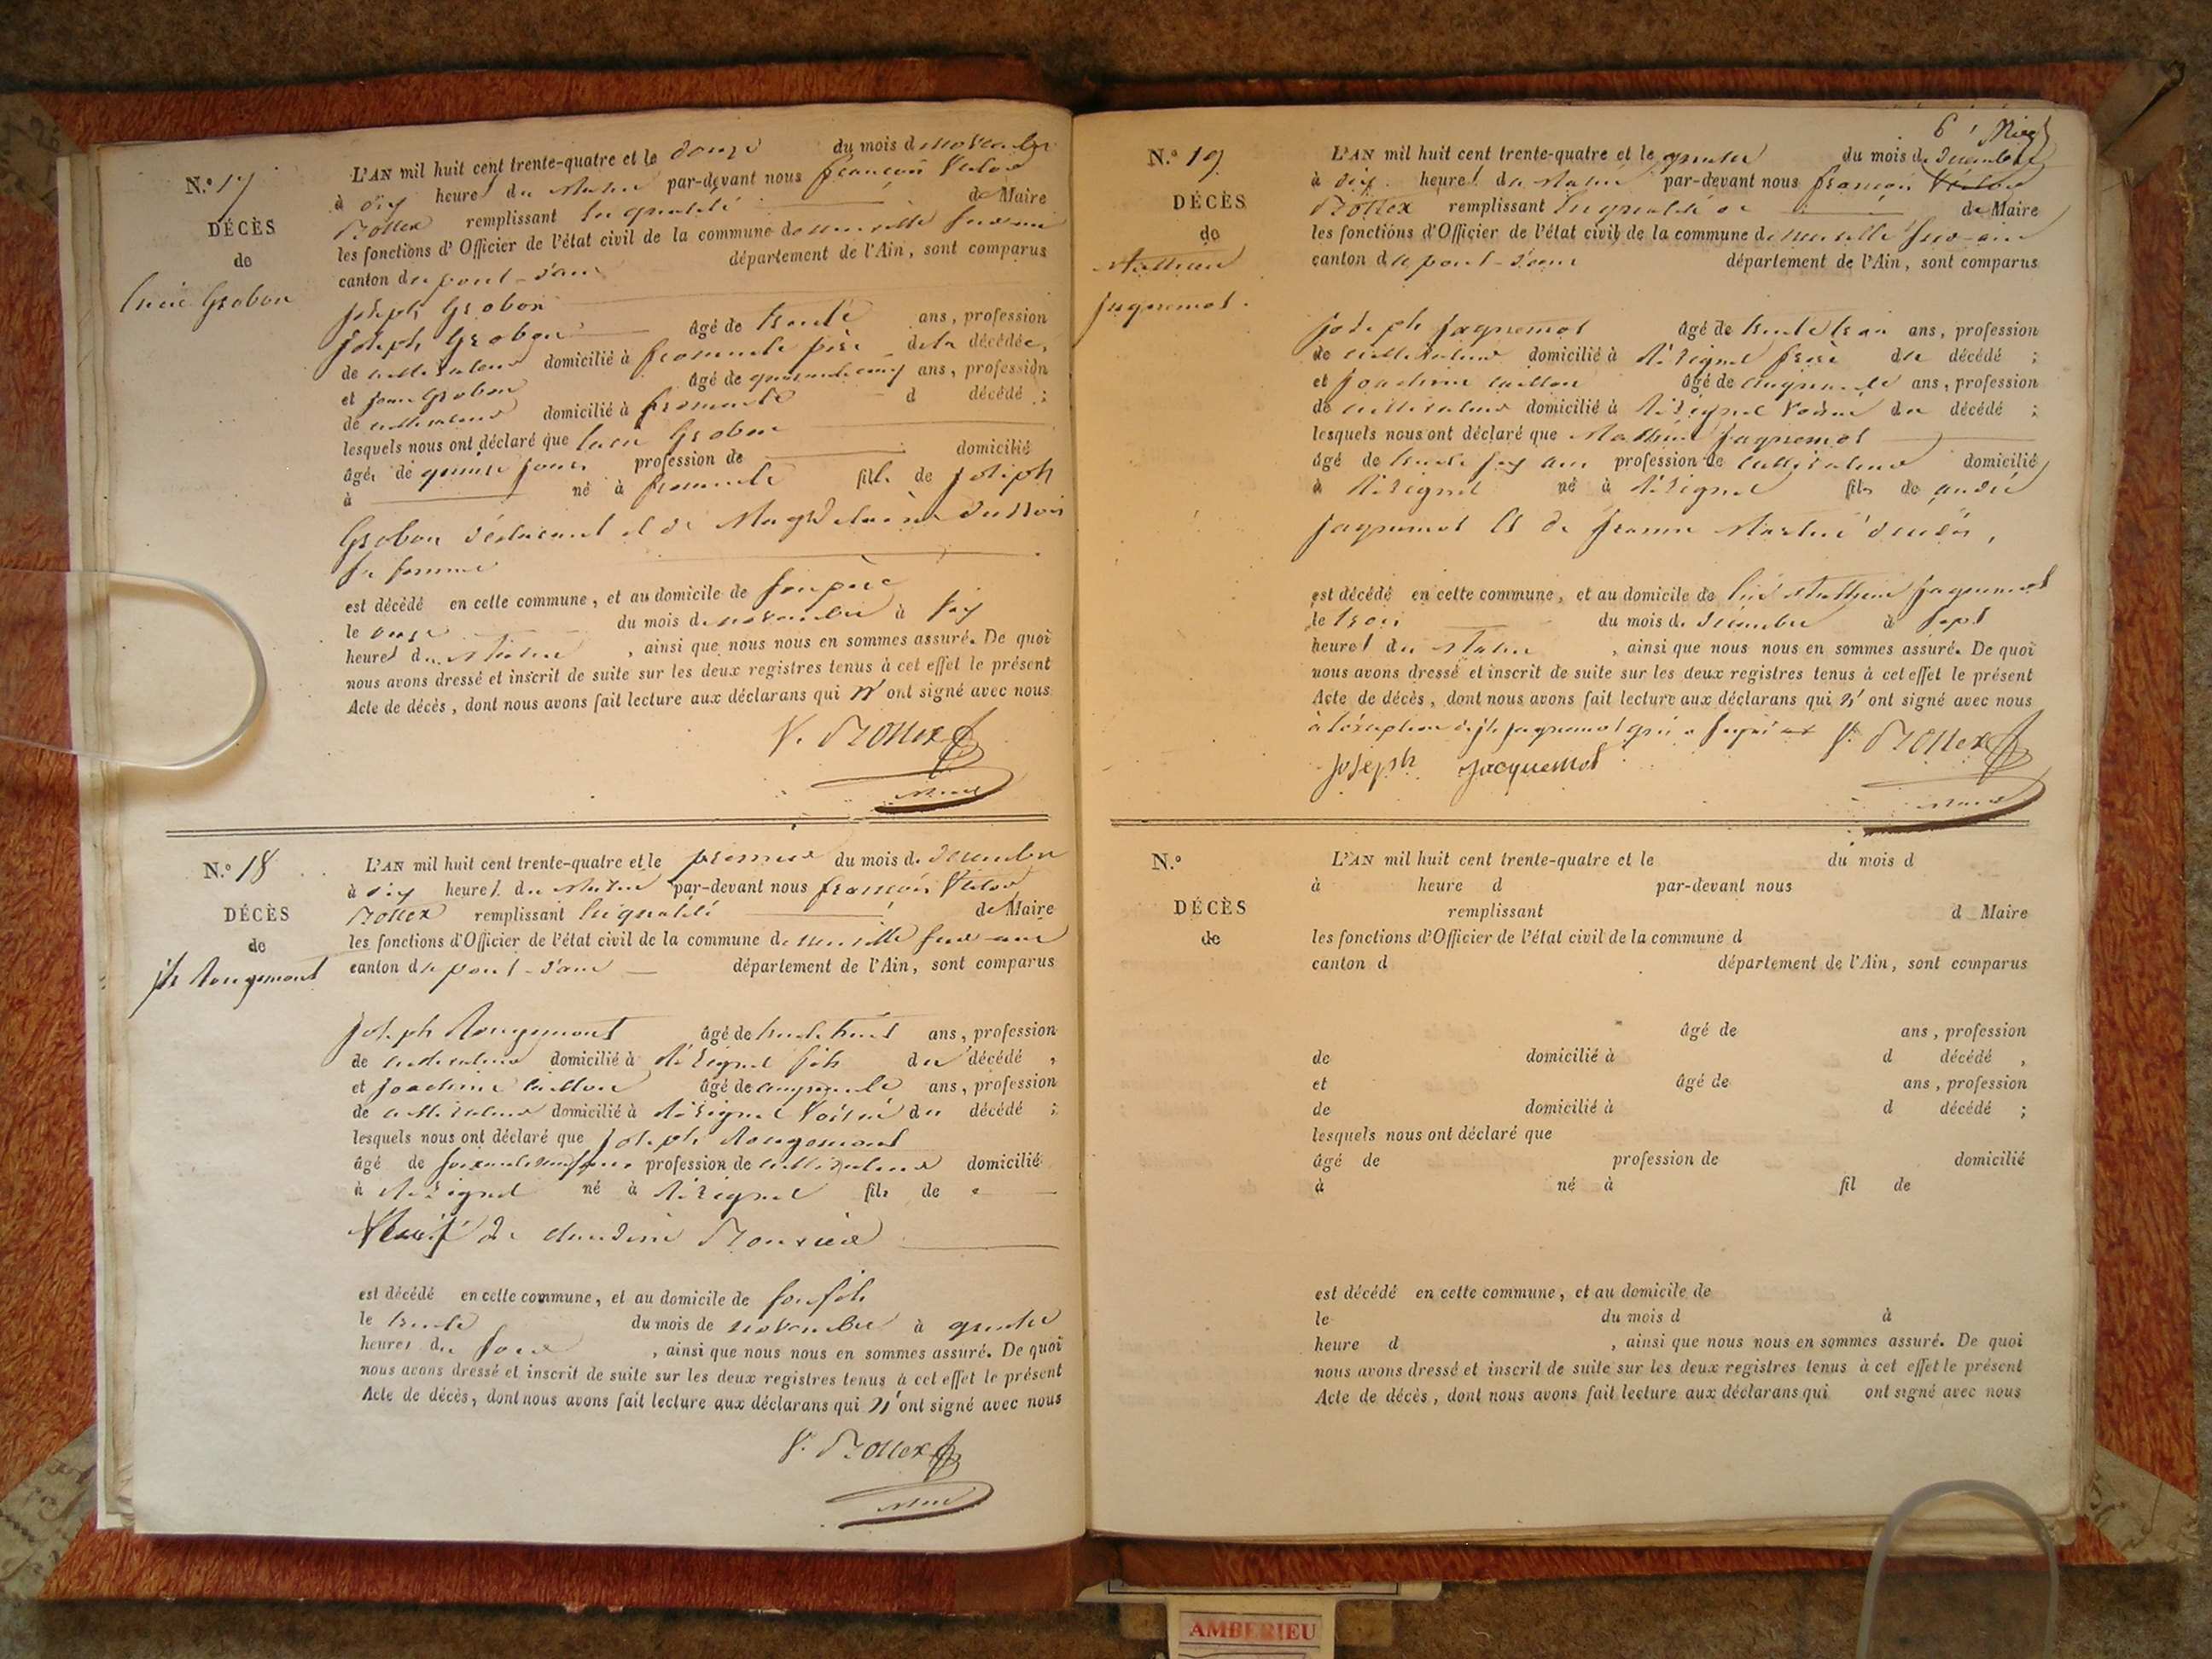 N.º 17
DÉCÈS
de
Lucie Grobon
L'AN mil huit cent trente-quatre et le douze du mois de novembre
à dix heures du matin par-devant nous françois Victor
Bollex remplissant la qualité de Maire
les fonctions d'Officier de l'état civil de la commune de neuville sur ain
canton du pont-d'ain département de l'Ain, sont comparus
Joseph Grobon
Joseph Grobon âgé de trente ans, profession
de cultivateur domicilié à fromente père de la décédée,
et Jean Grobon âgé de quarante cinq ans, profession
de cultivateur domicilié à fromente d décédé ;
lesquels nous ont déclaré que lucie Grobon
âgée de quinze jours profession de domicilié
à né à fromente fille de Joseph
Grobon déclarant et de Magdelaine
sa femme
est décédé en cette commune, et au domicile de son père
le onze du mois de novembre à six
heures du Matin , ainsi que nous nous en sommes assuré. De quoi
nous avons dressé et inscrit de suite sur les deux registres tenus à cet effet le présent
Acte de décès, dont nous avons fait lecture aux déclarans qui n' ont signé avec nous
V. Bollex
Maire
N.º 18
DÉCÈS
de
jh Rougemont
L'AN mil huit cent trente-quatre et le premier du mois de décembre
à dix heures du Matin par-devant nous françois Victor
Bollex remplissant la qualité de Maire
les fonctions d'Officier de l'état civil de la commune de neuville sur ain
canton du pont-d'ain département de l'Ain, sont comparus
Joseph Rougemont âgé de trente huit ans, profession
de cultivateur domicilié à Résignel fils du décédé ,
et Joachim âgé de cinquante ans, profession
de cultivateur domicilié à Résignel Voisin du décédé ;
lesquels nous ont déclaré que Joseph Rougemont
âgé de profession de cultivateur domicilié
à Résignel né à Résignel fils de
Veuf de claudine
est décédé en cette commune, et au domicile de son fils
le trente du mois de novembre à quatre
heures du soir , ainsi que nous nous en sommes assuré. De quoi
nous avons dressé et inscrit de suite sur les deux registres tenus à cet effet le présent
Acte de décès, dont nous avons fait lecture aux déclarans qui n' ont signé avec nous
V. Bollex
Maire
6
N.º 19
DÉCÈS
de
Mathieu
Jaquemot.
L'AN mil huit cent trente-quatre et le quatre du mois de décembre
à dix heures du Matin par-devant nous françois Victor
Bollex remplissant la qualité de de Maire
les fonctions d'Officier de l'état civil de la commune de neuville sur-ain
canton du pont-d'ain département de l'Ain, sont comparus
Joseph Jaquemot âgé de trente trois ans, profession
de cultivateur domicilié à Résignel frère du décédé ;
et Joachim âgé de cinquante ans, profession
de cultivateur domicilié à Résignel Voisin du décédé ;
lesquels nous ont déclaré que Mathieu Jaquemot
âgé de trente six ans profession de cultivateur domicilié
à Résignel né à Résignel fils de andré
Jaquemot et de Jeanne
est décédé en cette commune, et au domicile de Mathieu Jaquemot
le trois du mois de décembre à sept
heures du Matin , ainsi que nous nous en sommes assuré. De quoi
nous avons dressé et inscrit de suite sur les deux registres tenus à cet effet le présent
Acte de décès, dont nous avons fait lecture aux déclarans qui n' ont signé avec nous
à l'exception de jh Jaquemot qui a signé V. Bollex
Joseph Jacquemot
Maire
N.º
DÉCÈS
de
L'AN mil huit cent trente-quatre et le du mois d
à heure d par-devant nous
remplissant d Maire
les fonctions d'Officier de l'état civil de la commune d
canton d département de l'Ain, sont comparus
âgé de ans, profession
de domicilié à d décédé ,
et âgé de ans, profession
de domicilié à d décédé ;
lesquels nous ont déclaré que
âgé de profession de domicilié
à né à fil de
est décédé en cette commune, et au domicile de
le du mois d à
heure d , ainsi que nous nous en sommes assuré. De quoi
nous avons dressé et inscrit de suite sur les deux registres tenus à cet effet le présent
Acte de décès, dont nous avons fait lecture aux déclarans qui ont signé avec nous
AMBERIEU